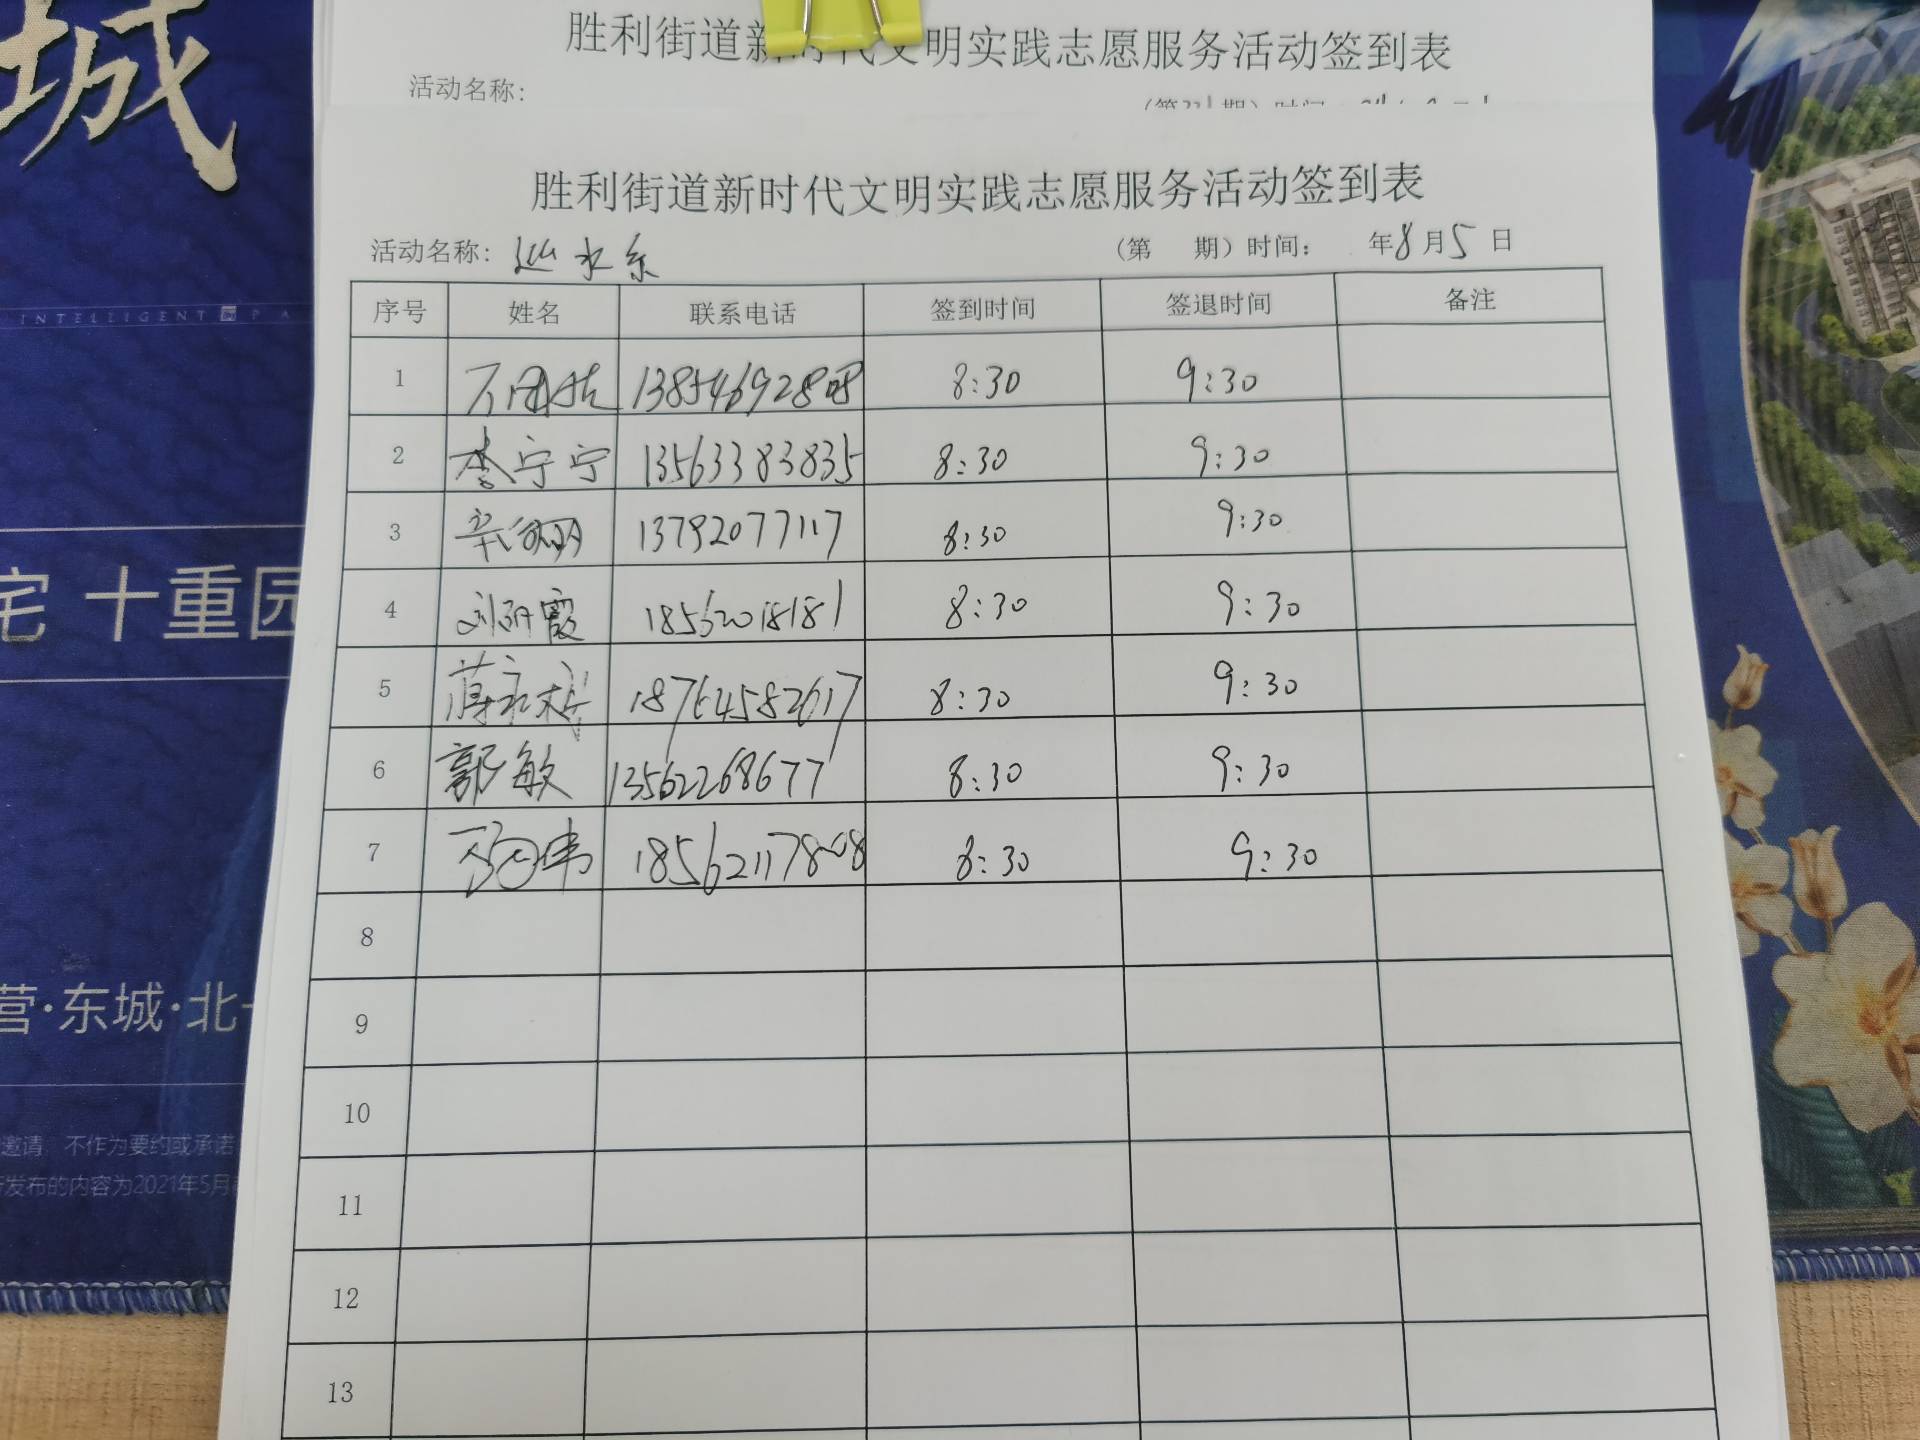 城
胜利街道新时代文明实践志愿服务活动签到表
活动名称:
胜利街道新时代文明实践志愿服务活动签到表
活动名称: 巡水系 (第 期) 时间: 年8月5日
序号 姓名 联系电话 签到时间 签退时间 备注
1 13854692808 8:30 9:30
2 李宁宁 13563383835 8:30 9:30
3 13792077117 8:30 9:30
4 刘丽霞 18562018181 8:30 9:30
5 18764582617 8:30 9:30
6 郭敏 13562268677 8:30 9:30
7 8:30 9:30
8
9
10
11
12
13
INTELLIGENT PA
宅 十重园
营·东城·北
邀请,不作为要约或承诺
发布的内容为2021年5月